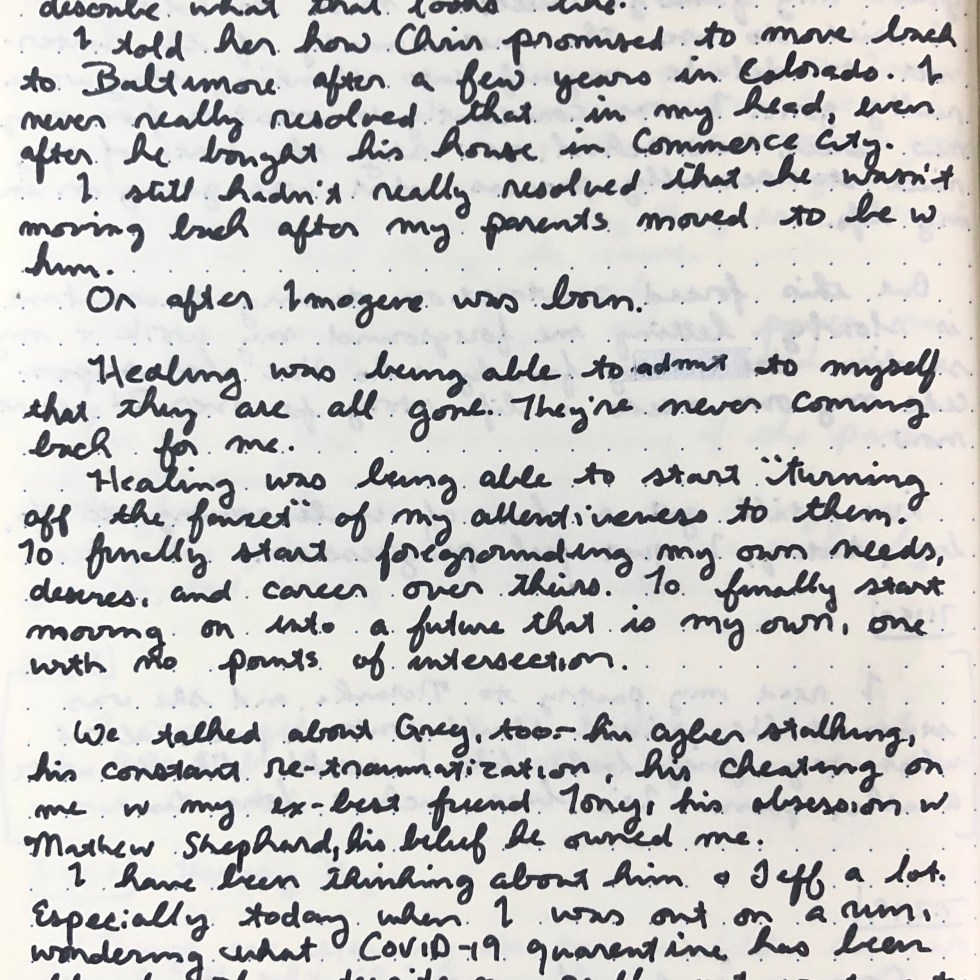 describe what that looks like.
I told her how Chris promised to move back
to Baltimore after a few years in Colorado. I
never really resolved that in my head, even
after he bought his house in Commerce City.
I still hadn't really resolved that he wasn't
moving back after my parents moved to be w
him.
Or after Imogene was born.
Healing was being able to admit to myself
that they are all gone. They're never coming
back for me.
Healing was being able to start "turning
off the faucet" of my attentiveness to them.
To finally start foregrounding my own needs,
desires, and career over theirs. To finally start
moving on into a future that is my own, one
with no points of intersection.
We talked about Greg, too - his cyber stalking,
his constant re-traumatization, his cheating on
me w my ex-best friend Tony, his obsession w
Mathew Shephard, his belief he owned me.
I have been thinking about him & Jeff a lot.
Especially today when I was out on a run,
wondering what COVID-19 quarentine has been